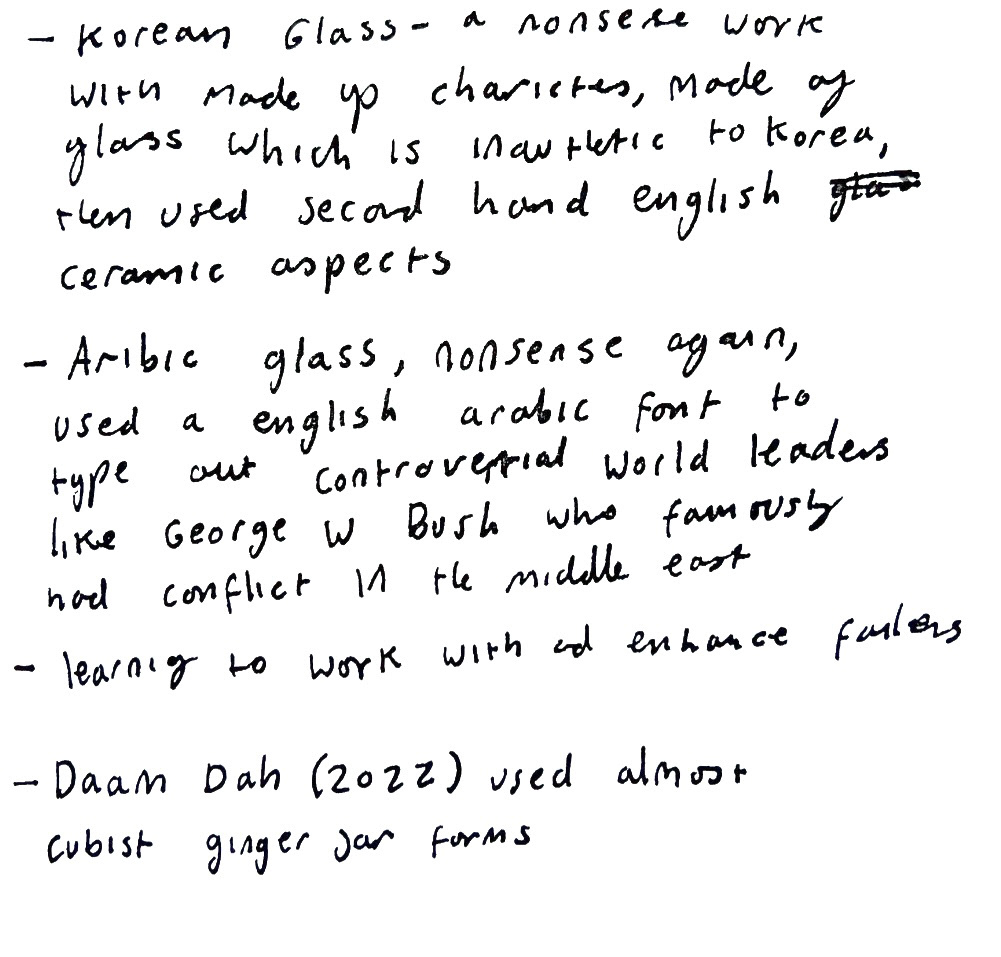 - Korean Glass - a nonsense work
with made up charictes, made of
glass which is inauthetic to Korea,
then used second hand english
ceramic aspects
- Aribic glass, nonsense again,
used a english arabic font to
type out controversial world leaders
like George W Bush who famously
had conflict in the middle east
- learnig to work with ad enhance
- Daam Dah (2022) used almost
cubist ginger jar forms